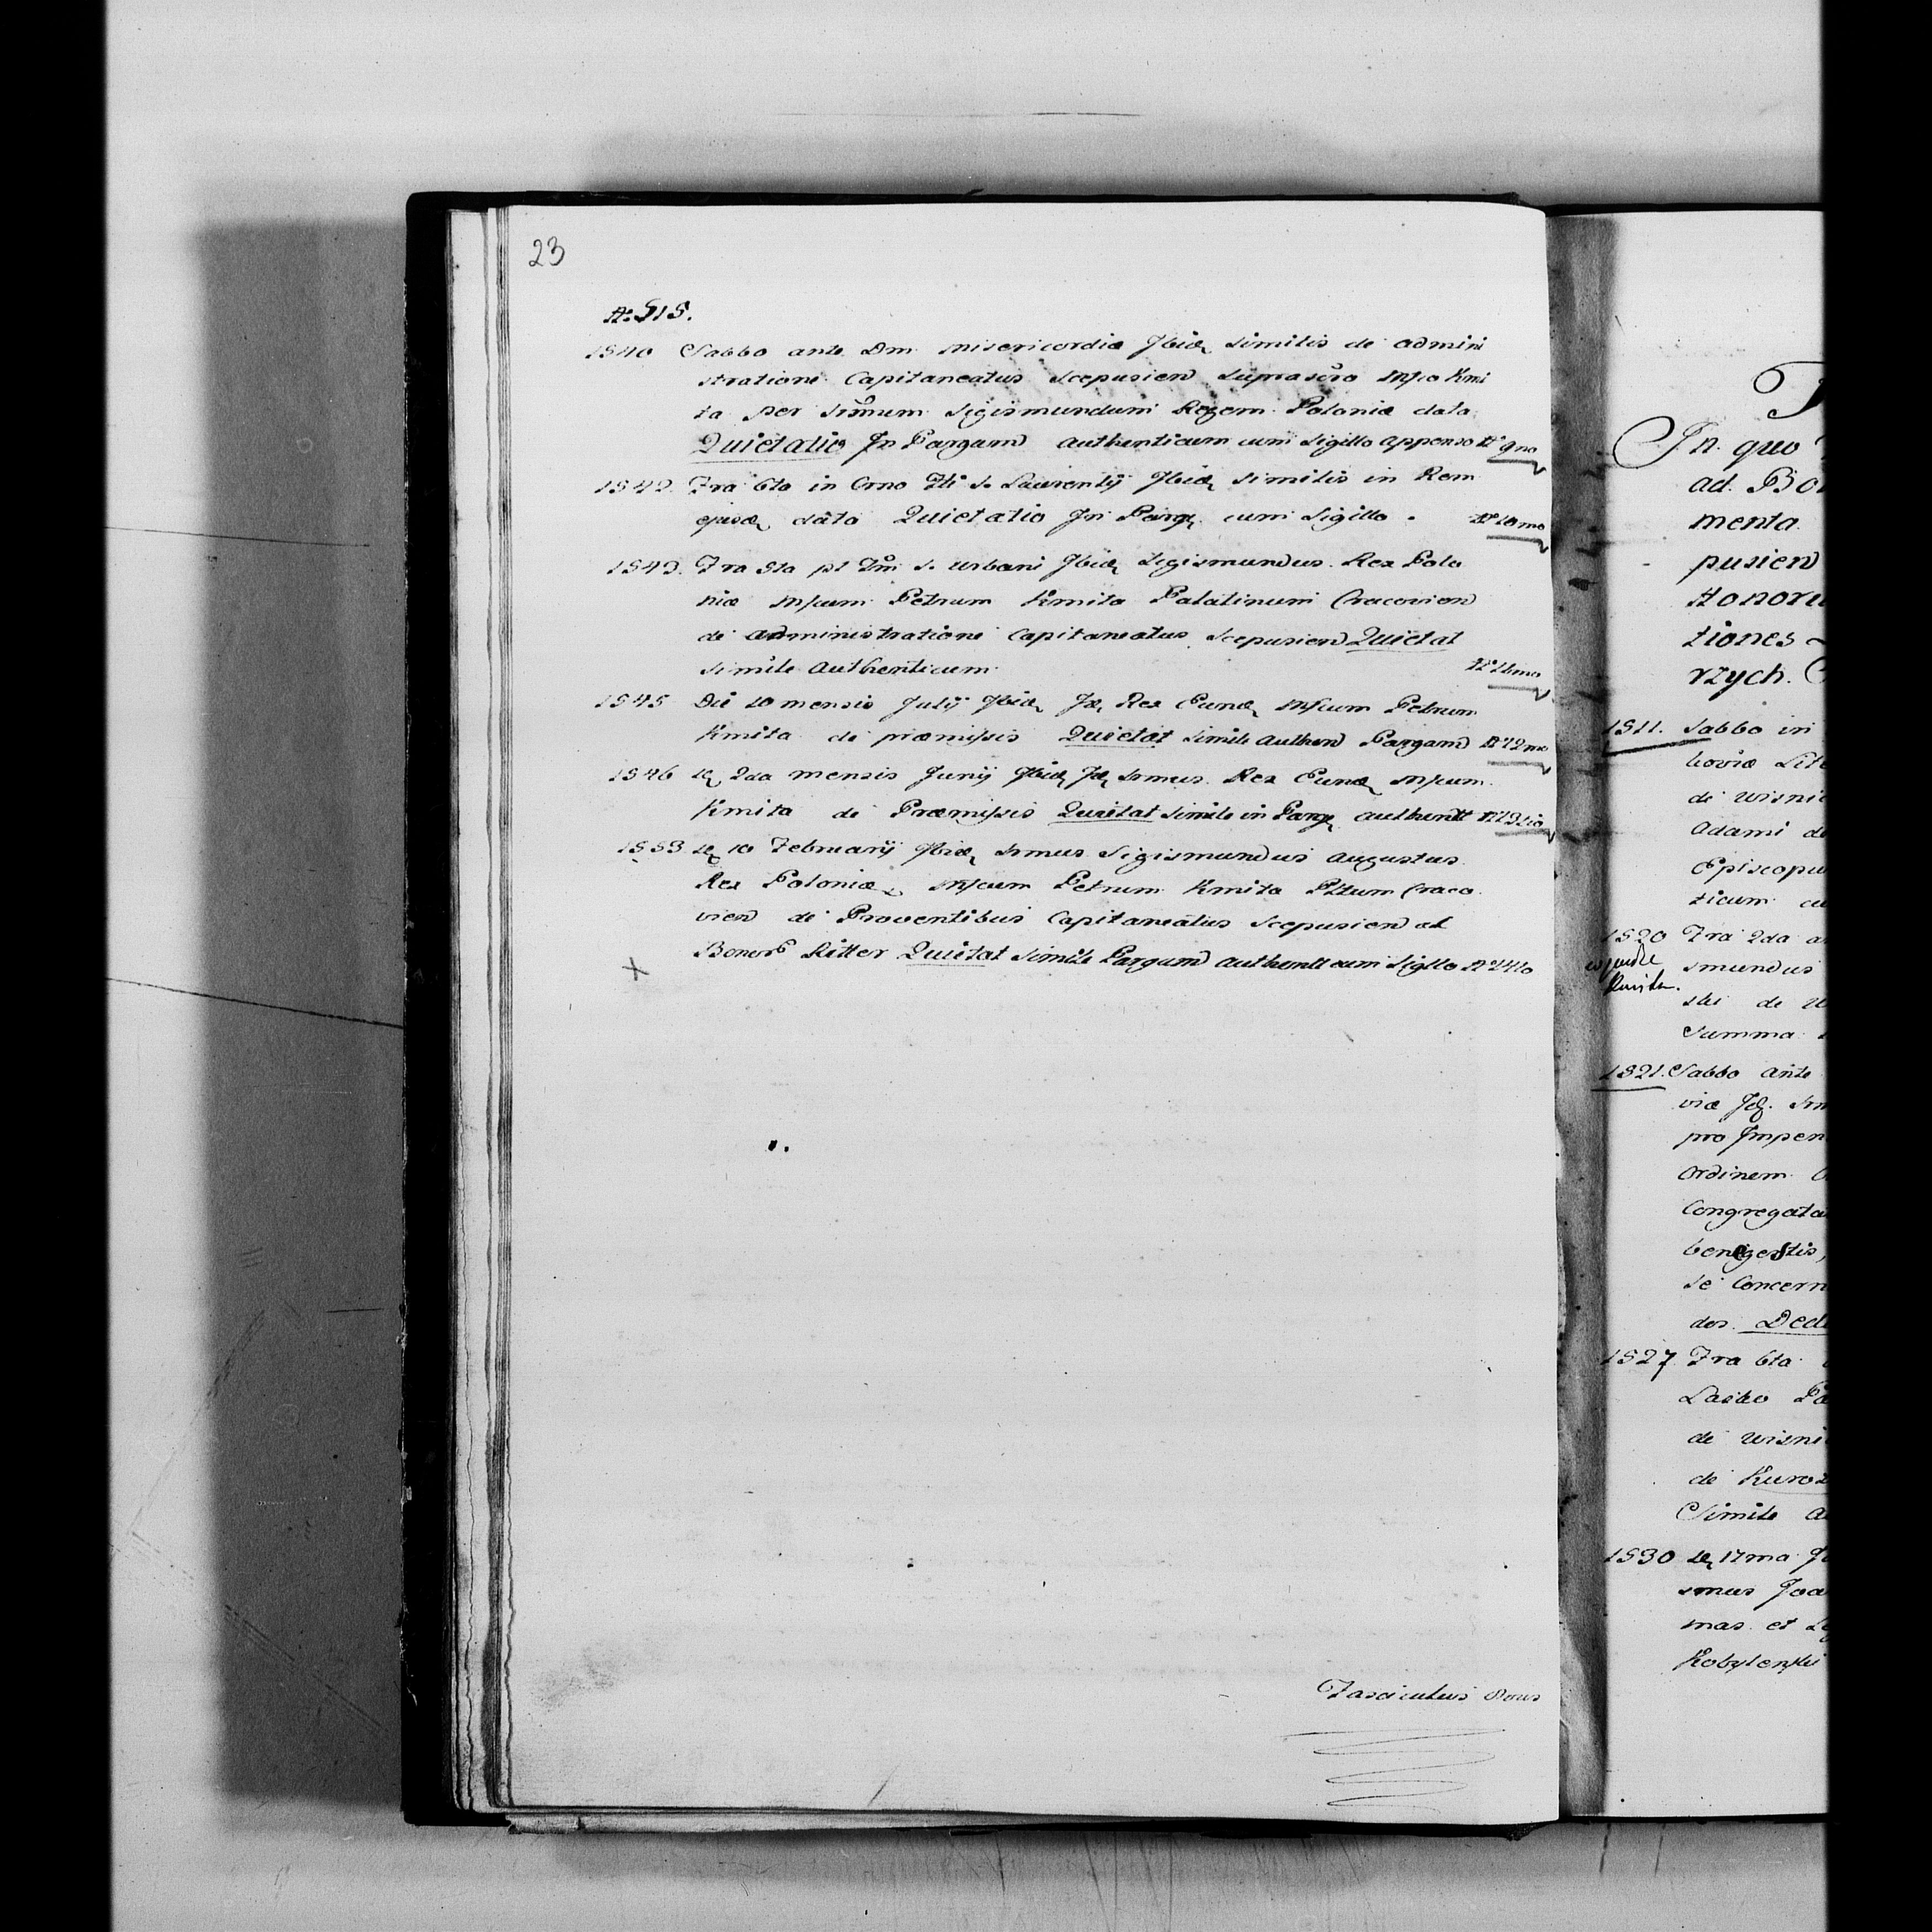 23
A: 515.
1540 Sabbo ante Dm Misericordiæ Ibid Similis de admini
stratione Capitaneatus Scepusien supra Kmi
ta per Srmum Sigismundum Regem Poloniæ data
Quietatio In Pargam authenticum cum Sigillo appenso Nº 9no
1542. Fra 6ta in Crno S. Laurentij Ibid Similis in Rem
ejusd data Quietatio In Parg cum Sigillo. Nº 10mo
1543. Fra 5ta pt S. Urbani Ibid Sigismundus Rex Polo
niæ Petrum Kmita Palatinum Cracovien
de administratione Capitaneatus Scepusien Quietat
simile authenticum Nº 11mo
1545 Die 10 mensis Julij Ibid Id Rex Eund Petrum
Kmita de præmissis Quietat simile authen Pargam Nº 12mo
1546 2da mensis Junij Ibid Id Srmus Rex Eund
Kmita de Præmissis Quietat simile in Parg authentt Nº 13tio
1553 10 Februarij Ibid Srmus Sigismundus Augustus
Rex Poloniæ Petrum Kmita Pltum Craco
vien de Proventibus Capitaneatus Scepusien et
Bonor Ritter Quietat simile Pargam authentt cum Sigillo Nº 14to
Fasciculus
In quo
ad. Bo
menta.
pusien
Honoru
tiones
rzych.
1511. Sabbo in
boviæ Lit
de Wisni
Adami de
Episcopu
ticum cu
1520 Fra 2da a
smundus
ski de
Summa
1521. Sabbo ante
viæ Id. Srm
pro Impen
Ordinem
Congregata
se Concern
des. Dedi
1527. Fra 6ta
Lasko Pa
de Wisni
de Kuroz
Simile a
1530 17ma
smus Joa
mas et
Kobylenski